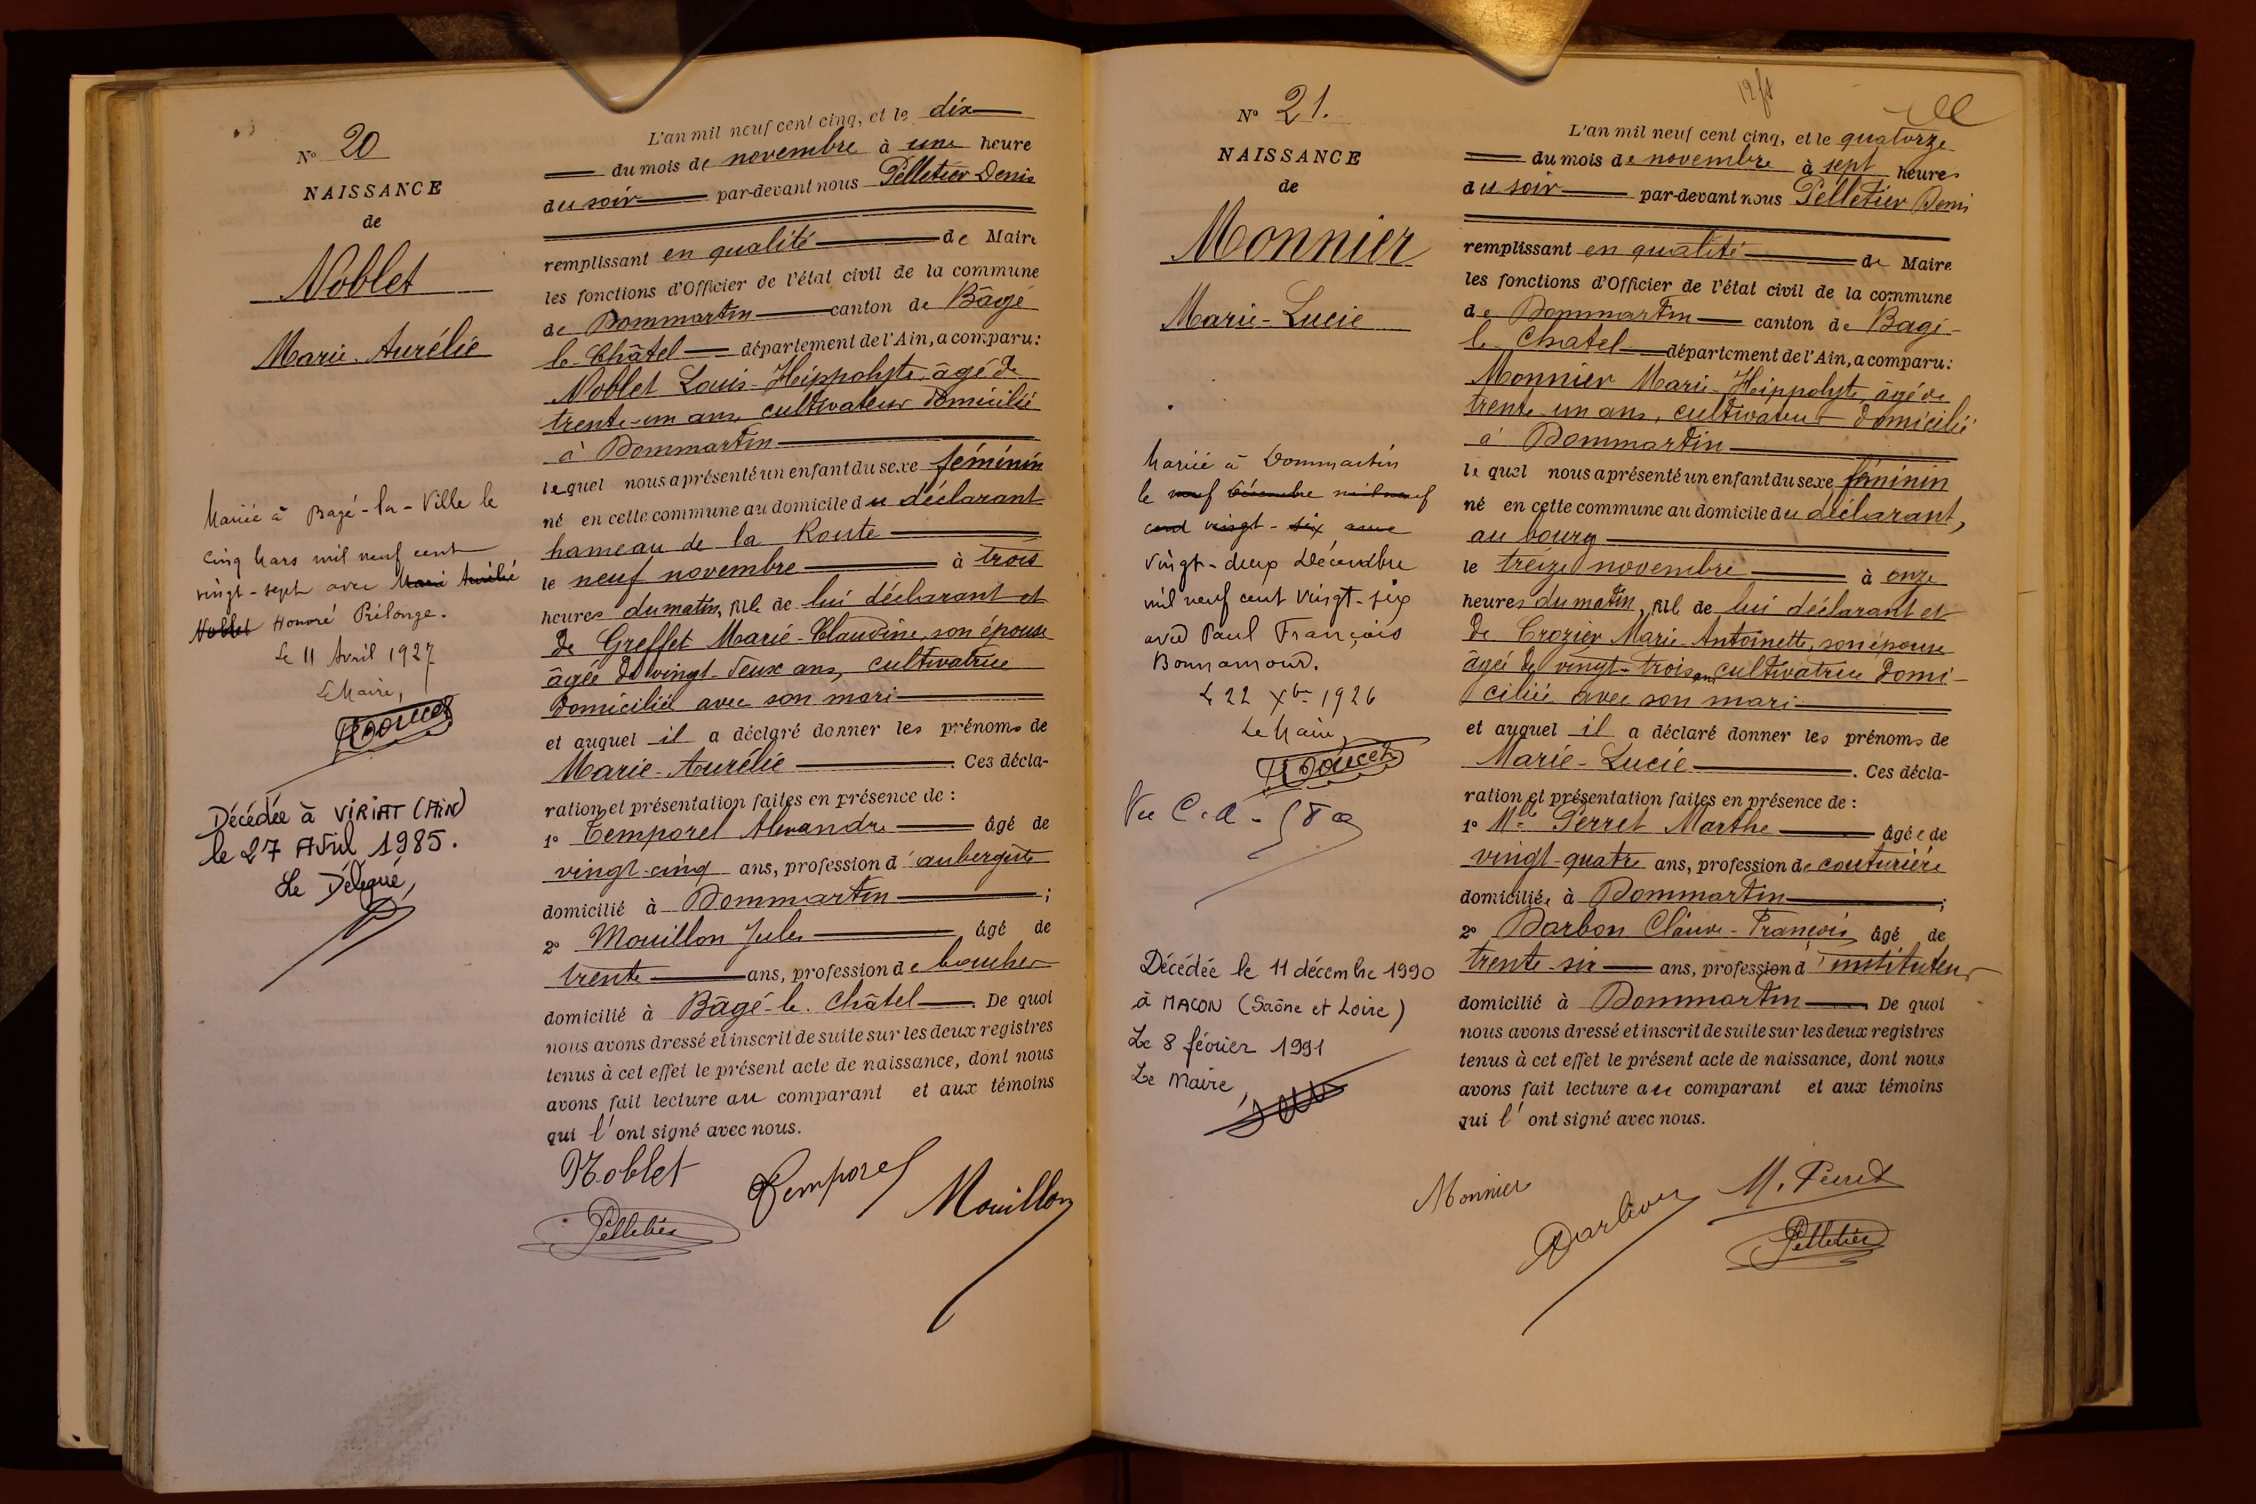 Nº 20
NAISSANCE
de
Noblet
Marie-Aurélie
Mariée à Bagé-la-Ville le
cinq Mars mil neuf cent
vingt-sept avec Marie Aurélie
Noblet Honoré Prélonge.
Le 11 Avril 1927
Le Maire,
Doucet
Décédée à VIRIAT (AIN)
le 27 Avril 1985.
Le Délégué,
L'an mil neuf cent cinq, et le dix
du mois de novembre à une heure
du soir par-devant nous Pelletier Denis
remplissant en qualité de Maire
les fonctions d'Officier de l'état civil de la commune
de Dommartin canton de Bâgé
le Châtel département de l'Ain, a comparu:
Noblet Louis-Heippolyte, âgé de
trente-un ans, cultivateur domicilié
à Dommartin
lequel nous a présenté un enfant du sexe féminin
né en cette commune au domicile du déclarant
hameau de la Route
le neuf novembre à trois
heures du matin, fille de lui déclarant et
de Greffet Marie-Claudine, son épouse
âgée de vingt-deux ans, cultivatrice
domiciliée avec son mari
et auquel il a déclaré donner les prénoms de
Marie-Aurélie. Ces décla-
ration et présentation faites en présence de :
1º Temporel Alexandre âgé de
vingt-cinq ans, profession d'aubergiste
domicilié à Dommartin ;
2º Mouillon Jules âgé de
trente ans, profession de boucher
domicilié à Bâgé-le-Châtel. De quoi
nous avons dressé et inscrit de suite sur les deux registres
tenus à cet effet le présent acte de naissance, dont nous
avons fait lecture au comparant et aux témoins
qui l'ont signé avec nous.
Noblet Temporel Mouillon
Pelletier
Nº 21.
NAISSANCE
de
Monnier
Marie-Lucie
Mariée à Dommartin
le neuf Décembre mil neuf
cent vingt-six avec
vingt-deux Décembre
mil neuf cent vingt-six
avec Paul François
Bonnamour.
Le 22 Xbre 1926
Le Maire,
Doucet
Décédée le 11 décembre 1990
à MACON (Saône et Loire)
Le 8 février 1991
Le Maire,
L'an mil neuf cent cinq, et le quatorze
du mois de novembre à sept heures
du soir par-devant nous Pelletier Denis
remplissant en qualité de Maire
les fonctions d'Officier de l'état civil de la commune
de Dommartin canton de Bagé-
le Chatel département de l'Ain, a comparu:
Monnier Marie-Heippolyte, âgé de
trente un ans, cultivateur domicilié
à Dommartin
lequel nous a présenté un enfant du sexe féminin
né en cette commune au domicile du déclarant,
au bourg
le treize novembre à onze
heures du matin, fille de lui déclarant et
de Crozier Marie-Antoinette, son épouse
âgée de vingt-trois ans cultivatrice domi-
ciliée avec son mari
et auquel il a déclaré donner les prénoms de
Marie-Lucie. Ces décla-
ration et présentation faites en présence de :
1º Mlle Perret Marthe âgée de
vingt-quatre ans, profession de couturière
domiciliée à Dommartin ;
2º Darbon Claude-François âgé de
trente-six ans, profession d'instituteur
domicilié à Dommartin. De quoi
nous avons dressé et inscrit de suite sur les deux registres
tenus à cet effet le présent acte de naissance, dont nous
avons fait lecture au comparant et aux témoins
qui l'ont signé avec nous.
Monnier Darbon M. Perret
Pelletier